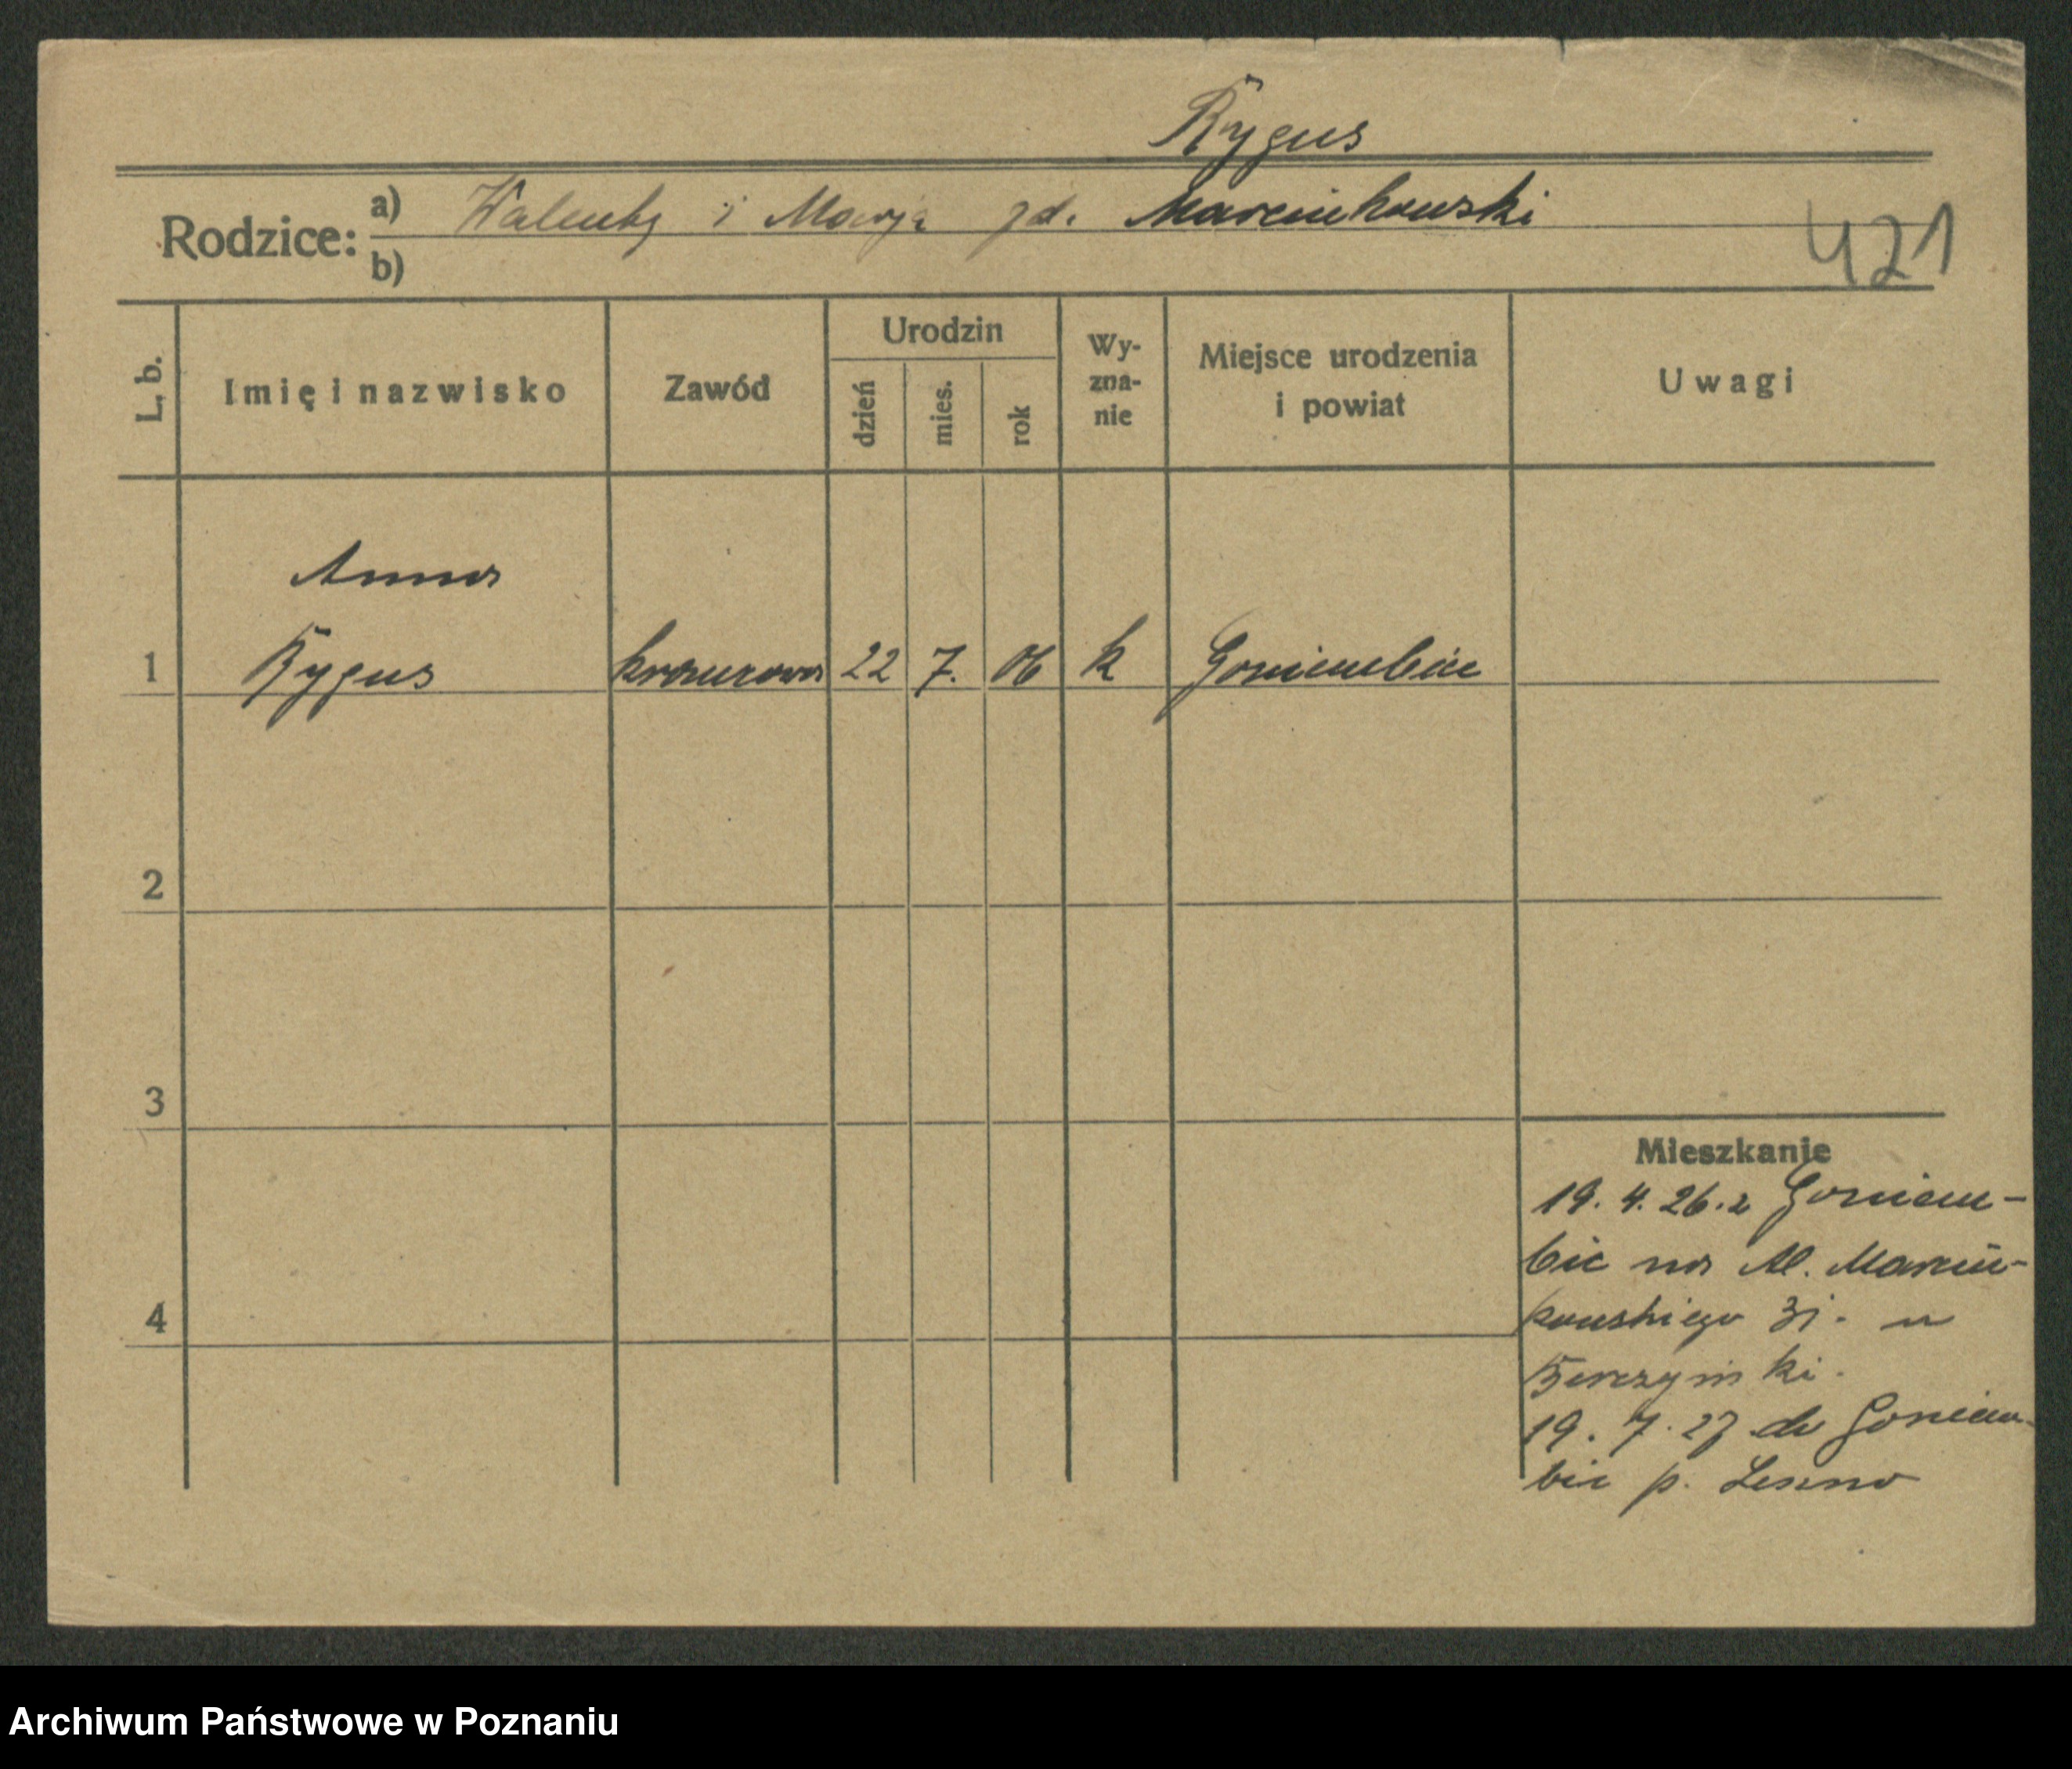 Rygus
Rodzice: a) Walenty i Marja zd. Marcinkowski
b)
421
L. b. Imię i nazwisko Zawód Urodzin dzień mies. rok Wy-zna-nie Miejsce urodzenia i powiat Uwagi
Anna
1 Rygus krawcowa 22 7. 06 k Goniembice
2
3
Mieszkanie
19. 4. 26. z Goniem-
bic na Al. Marcin-
4
kowskiego 3j. u
19. 7. 27 do Goniem-
bic p. Leszno
Archiwum Państwowe w Poznaniu